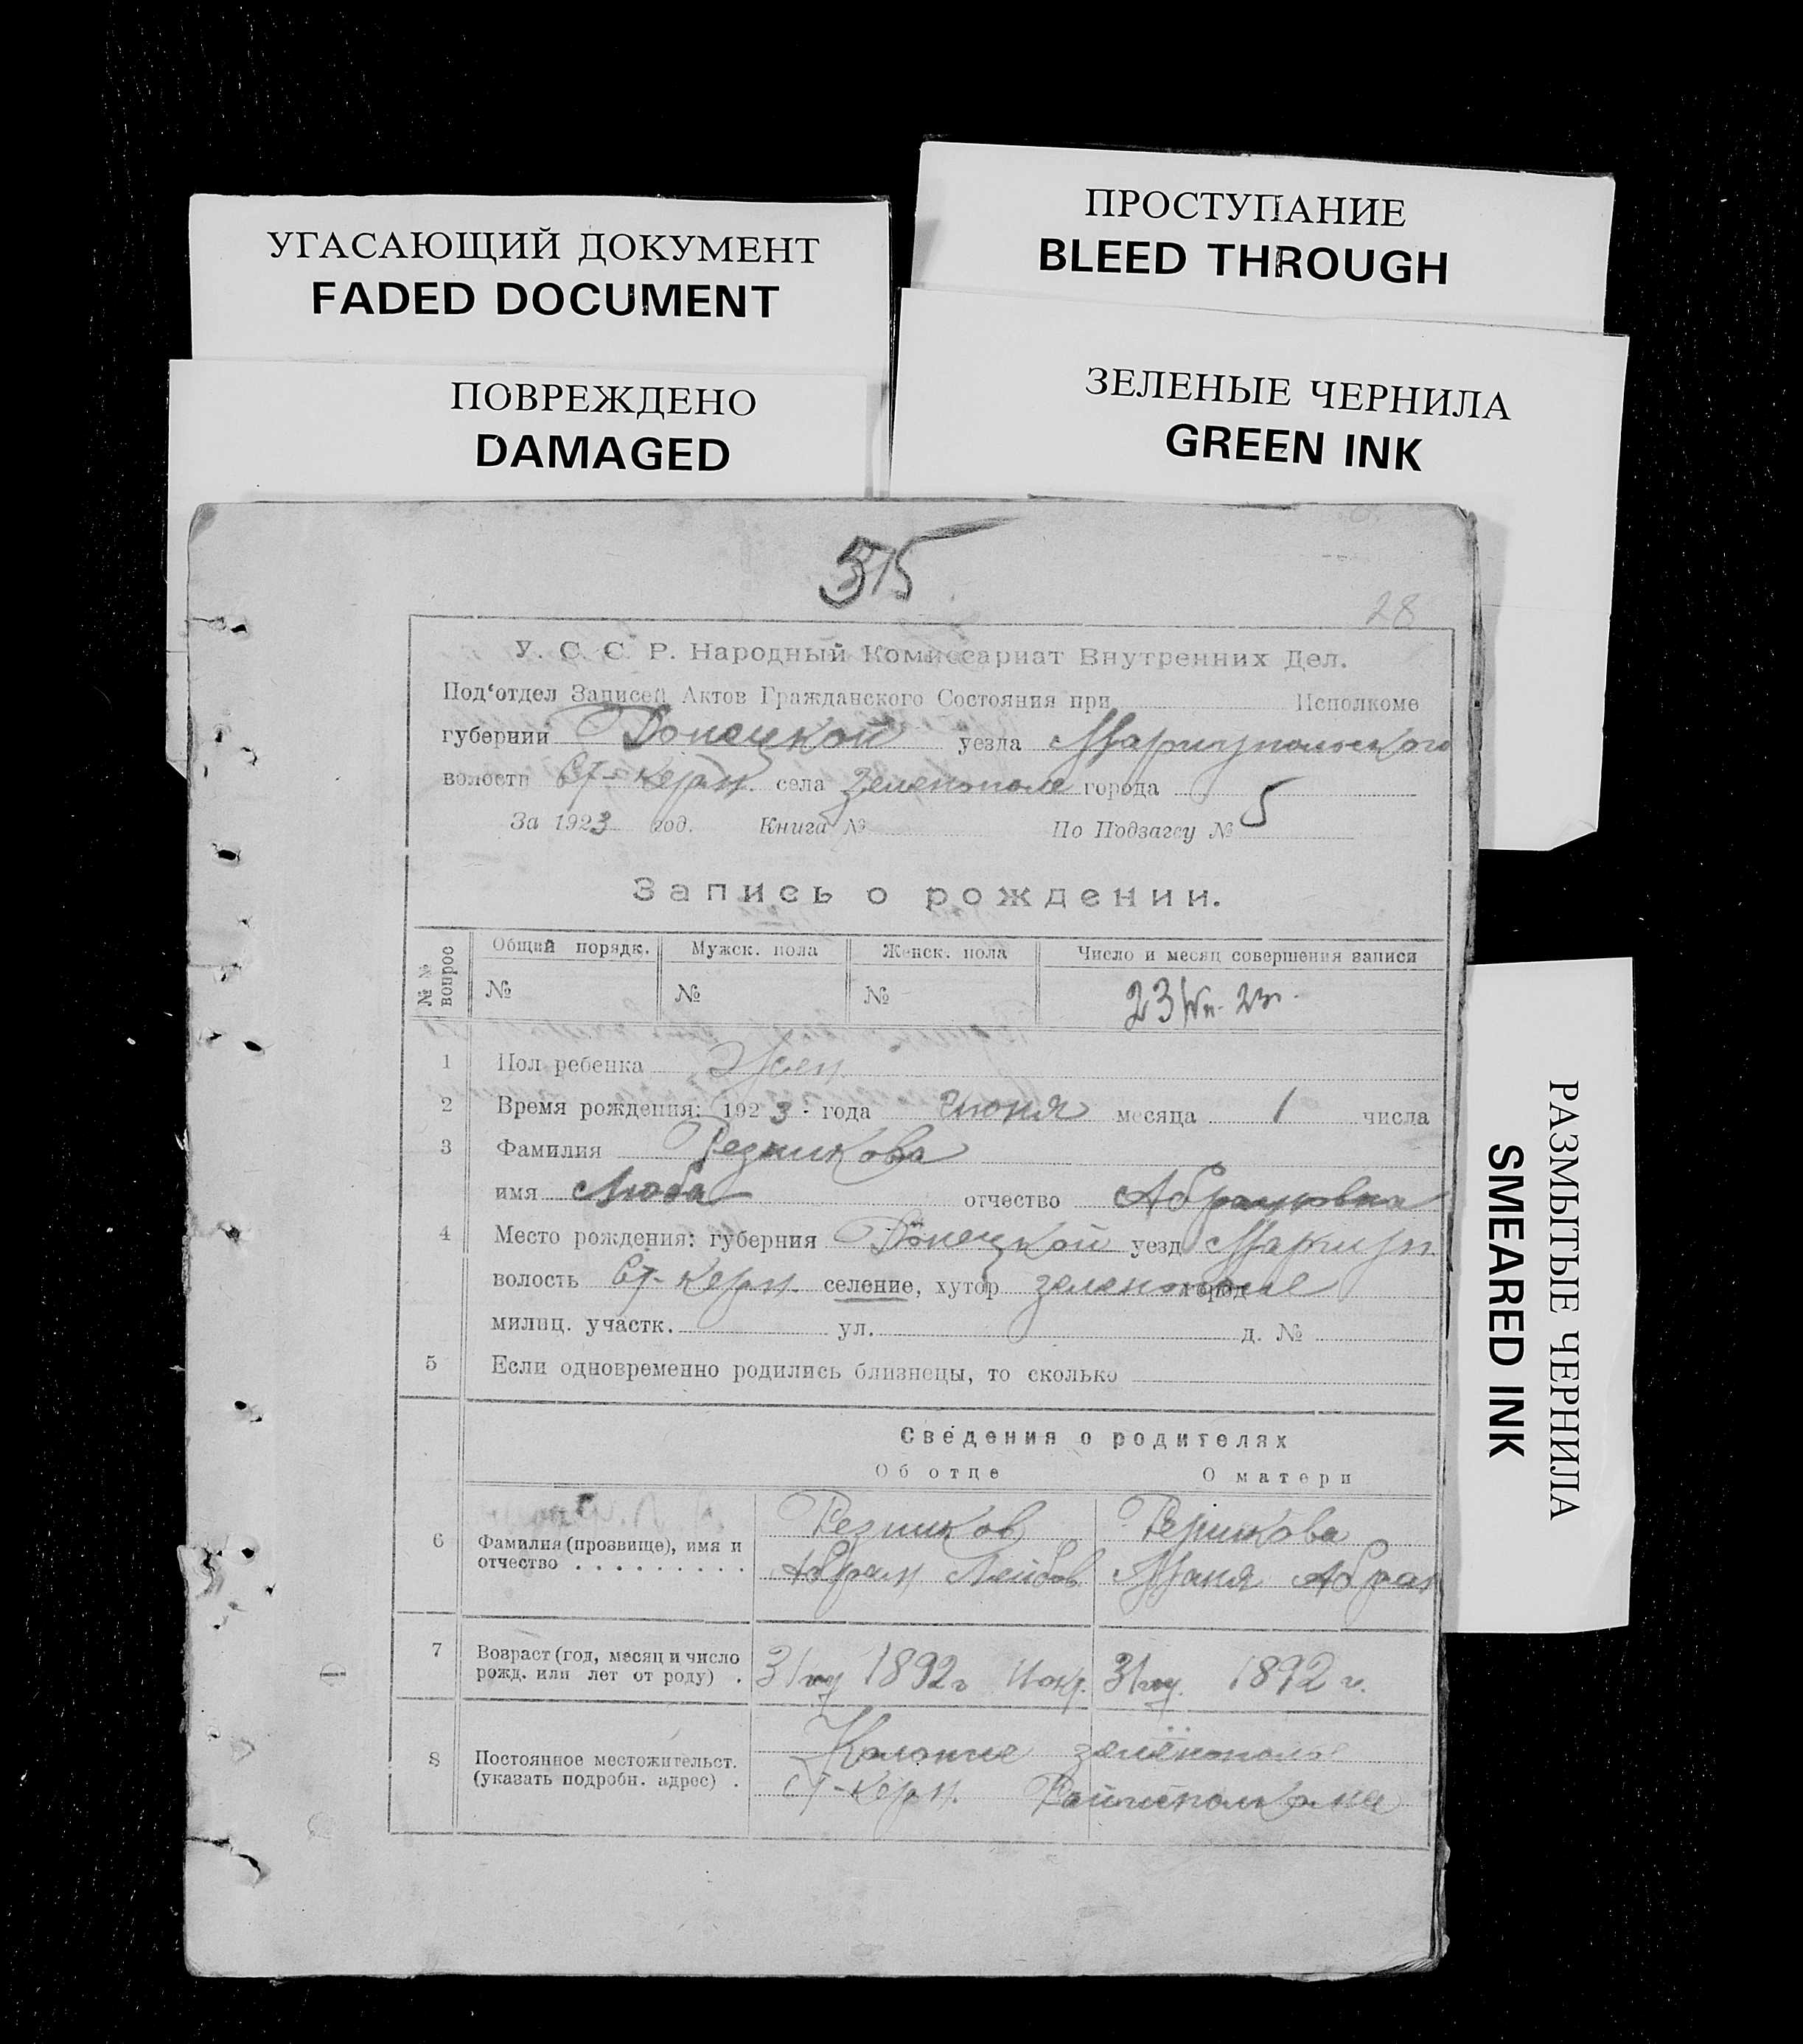 УГАСАЮЩИЙ ДОКУМЕНТ
FADED DOCUMENT
ПРОСТУПАНИЕ
BLEED THROUGH
ПОВРЕЖДЕНО
DAMAGED
ЗЕЛЕНЫЕ ЧЕРНИЛА
GREEN INK
28
У. С. С. Р. Народный Комиссариат Внутренних Дел.
Под‘отдел Записей Актов Гражданского Состояния при Исполкоме
губернии Донецкой уезда Мариупольского
волости Ст-Керм. села Зеленополе города
За 1923 год. Книга № По Подзагсу № 5
Запись о рождении.
№ № вопрос
Общий порядк. Мужск. пола Женск. пола Число и месяц совершения записи
№ № № 23
1 Пол ребенка Жен
2 Время рождения: 1923 - года Июня месяца 1 числа
3 Фамилия Резникова
имя Люба отчество Абрамовна
4 Место рождения: губерния Донецкой уезд Мариуп
волость Ст-Керм. селение, хутор Зеленополе город
милиц. участк. ул. д. №
5 Если одновременно родились близнецы, то сколько
Сведения о родителях
Об отце О матери
6 Фамилия (прозвище), имя и отчество Резников Резникова
Абрам Лейбов Маня Абрам
7 Возраст (год, месяц и число рожд. или лет от роду) 31 год 1892 г 31 год. 1892 г.
8 Постоянное местожительст. (указать подробн. адрес) Колоние Зеленополе
ст-Керм. Райисполкома
РАЗМЫТЫЕ ЧЕРНИЛА
SMEARED INK